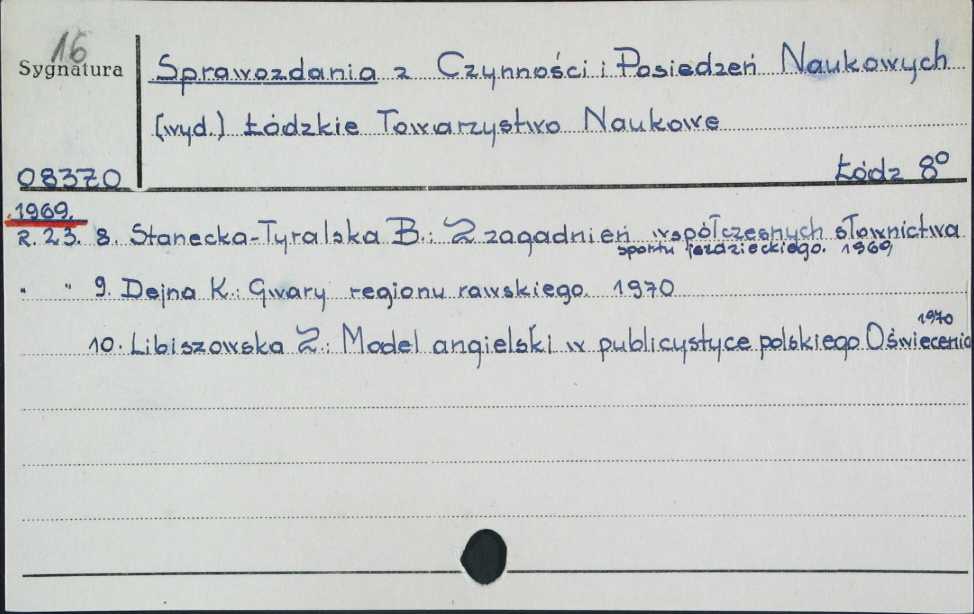 16
Sygnatura
Sprawozdania z Czynności i Posiedzeń Naukowych
(wyd.) Łódzkie Towarzystwo Naukowe
08370
Łódź 8°
1969.
R. 23. 8. Stanecka-Tyralska B.: Z zagadnień współczesnych słownictwa
sportu jeździeckiego. 1969
" " 9. Dejna K.: Gwary regionu rawskiego. 1970
10. Libiszowska Z.: Model angielski w publicystyce polskiego Oświecenia
1970